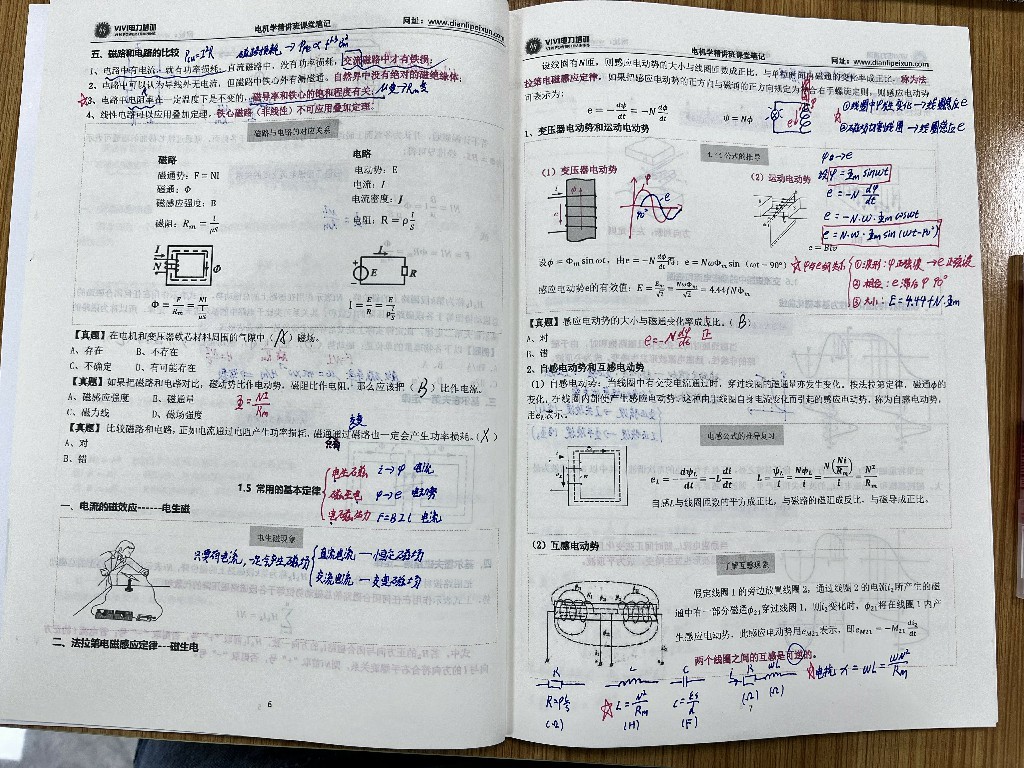 VIVI电力培训
电机学精讲班课堂笔记
网址：www.dianlipeixun.com
五、磁路和电路的比较
1、电路中有电流，就有功率损耗；直流磁路中，没有功率损耗，交流磁路中才有铁损；
2、电路中可以认为导线外无电流，但磁路中铁心外有漏磁通。自然界中没有绝对的磁绝缘体；
3、电路中电阻率在一定温度下是不变的，磁导率和铁心的饱和程度有关。
4、线性电路可以应用叠加定理，铁心磁路（非线性）不可应用叠加定理。
磁路与电路的对应关系
磁路
磁通势：F = NI
磁通：Φ
磁感应强度：B
磁阻：Rm = l/μS
电路
电动势：E
电流：I
电流密度：J
电阻：R = ρ l/S
I
N
Φ
I
E
R
【真题】在电机和变压器铁芯材料周围的气隙中（A）磁场。
A、存在 B、不存在
C、不确定 D、有可能存在
【真题】如果把磁路和电路对比，磁动势比作电动势，磁阻比作电阻，那么应该把（B）比作电流。
A、磁感应强度 B、磁通量
C、磁力线 D、磁场强度
【真题】比较磁路和电路，正如电流通过电阻产生功率损耗，磁通通过磁路也一定会产生功率损耗。（X）
A、对
B、错
电生磁 i→φ 电流
磁生电 φ→e 电动势
电磁力 F=BIl 电流
1.5 常用的基本定律
一、电流的磁效应------电生磁
电生磁现象
只要有电流，一定会产生磁场
直流电流 — 恒定磁场
交流电流 — 交变磁场
二、法拉第电磁感应定律---磁生电
6
VIVI电力培训
电机学精讲班课堂笔记
网址：www.dianlipeixun.com
设线圈有N匝，则感应电动势的大小与线圈匝数成正比，与单位时间内磁通的变化率成正比，称为法
拉第电磁感应定律。如果把感应电动势的正方向与磁通的正方向规定为符合右手螺旋定则，则感应电动势
可表示为：
e = −dψ/dt = −N dφ/dt ψ = Nφ
①线圈中φ发生变化→线圈感应e
②磁场切割线圈→线圈感应e
1、变压器电动势和运动电动势
4.44公式的推导
（1）变压器电动势
（2）运动电动势
φ e
90°
φ→e
设φ=Φm sinωt
e = -N dφ/dt
e = -N·ω·Φm cosωt
e = N·ω·Φm sin(ωt-90°)
e = Blv
设φ = Φm sin ωt，由e = −N dφ/dt得：e = NωΦm sin（ωt − 90°）
感应电动势e的有效值：E = Em/√2 = NωΦm/√2 = 4.44fNΦm
φ与e的关系
①波形：φ正弦波→e正弦波
②相位：e滞后φ 90°
③大小：E=4.44fN·Φm
【真题】感应电动势的大小与磁通变化率成正比。（B）
A、对
B、错
e=-N dφ/dt 正
2、自感电动势和互感电动势
（1）自感电动势：当线圈中有交变电流通过时，穿过线圈的磁通量亦发生变化，按法拉第定律，磁通φ的
变化，在线圈内部便产生感应电动势，这种由于线圈自身电流变化而引起的感应电动势，称为自感电动势，
用eL表示。
电感公式的推导复习
eL = −dψL/dt = −L di/dt L = ψL/i = NφL/i = N(Ni/Rm)/i = N²/Rm
自感L与线圈匝数的平方成正比，与磁路的磁阻成反比，与磁导成正比。
（2）互感电动势
了解互感现象
假定线圈1的旁边放置线圈2，通过线圈2的电流i₂所产生的磁
通中有一部分磁通φ₂₁穿过线圈1，则i₂变化时，φ₂₁将在线圈1内产
生感应电动势。此感应电动势用eM21表示，即eM21 = −M₂₁ di₂/dt
两个线圈之间的互感是可逆的。
R L C
R=ρl/S
(Ω)
L=N²/Rm
(H)
C=εs/d
(F)
R ωL
(Ω) (Ω)
电抗 x = ωL = ωN²/Rm